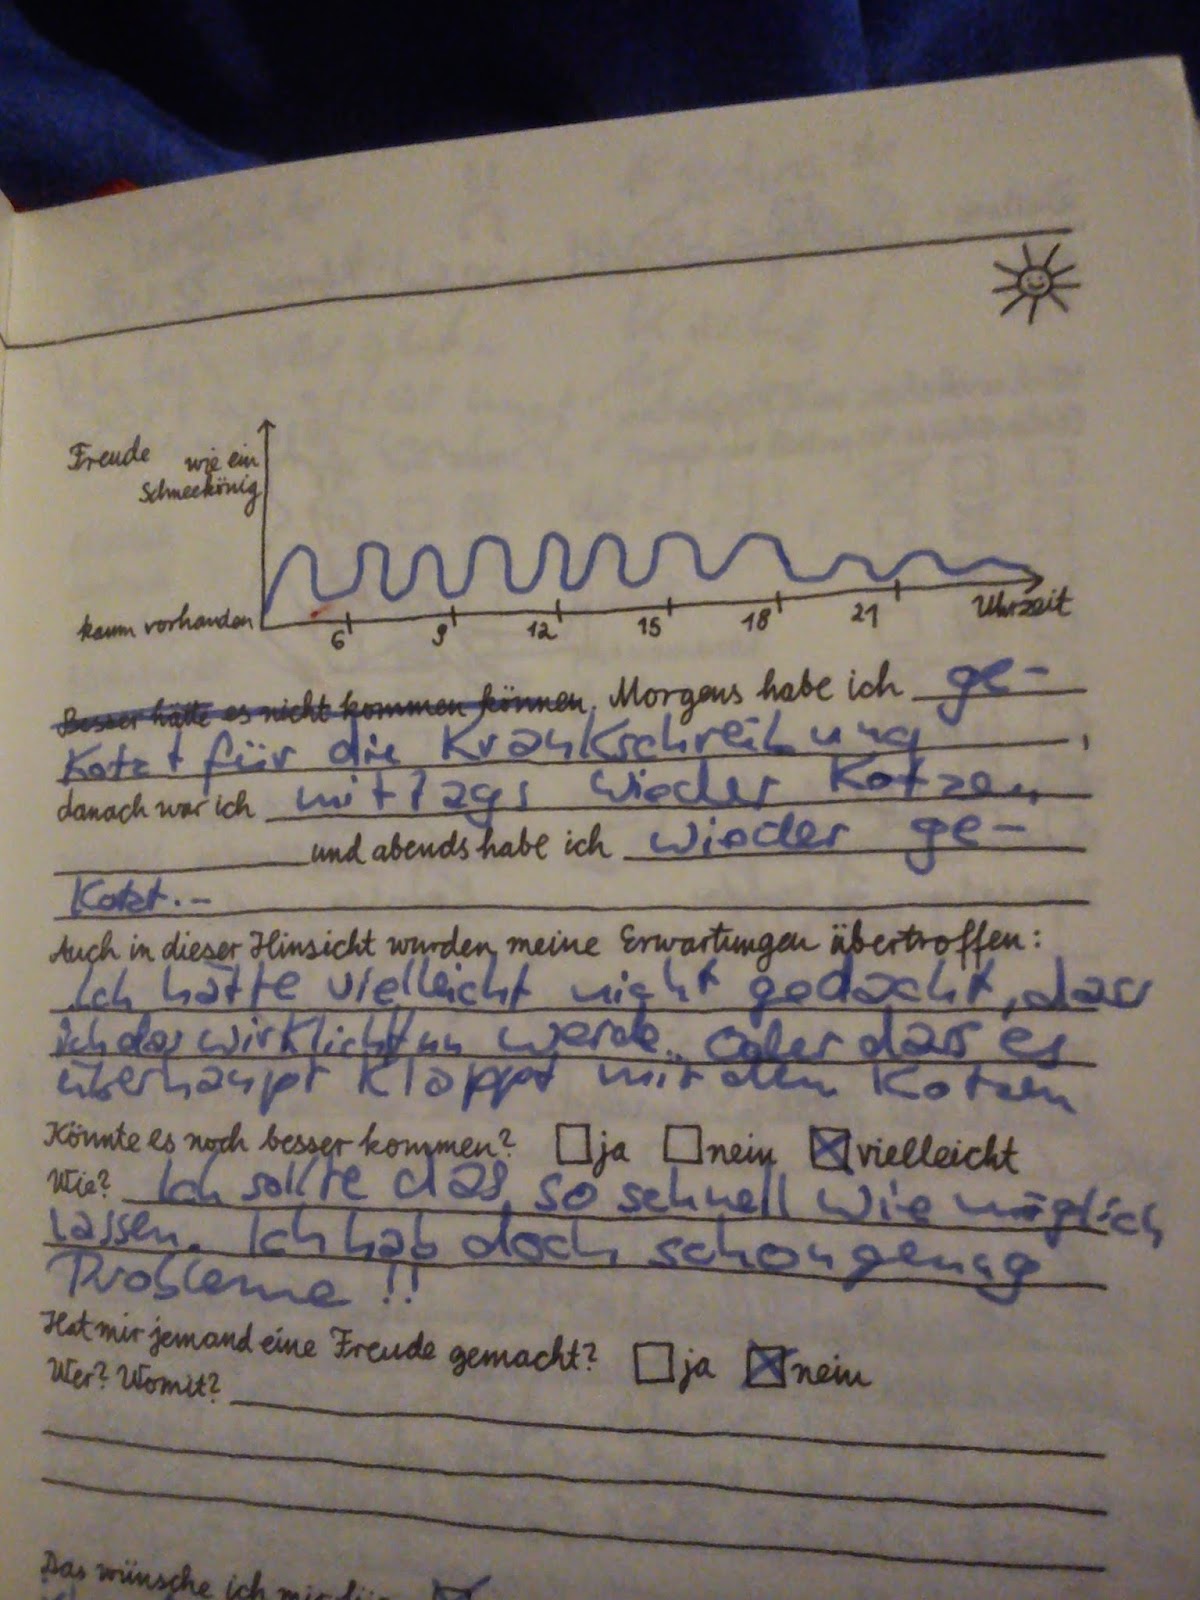 Freude wie ein
Schneekönig
kaum vorhanden
6 9 12 15 18 21 Uhrzeit
Besser hätte es nicht kommen können. Morgens habe ich ge-
Kotzt für die Krankschreibung,
danach war ich mittags wieder Kotzen
und abends habe ich wieder ge-
Kotzt.-
Auch in dieser Hinsicht wurden meine Erwartungen übertroffen:
Ich hätte vielleicht nicht gedacht, dass
ich das wirklich tun werde.. Oder dass es
überhaupt Klappt mit dem Kotzen
Könnte es noch besser kommen? ja nein vielleicht
Wie? Ich sollte das so schnell wie möglich
lassen. Ich hab doch schon genug
Probleme!!
Hat mir jemand eine Freude gemacht? ja nein
Wer? Womit?
Das wünsche ich mir für